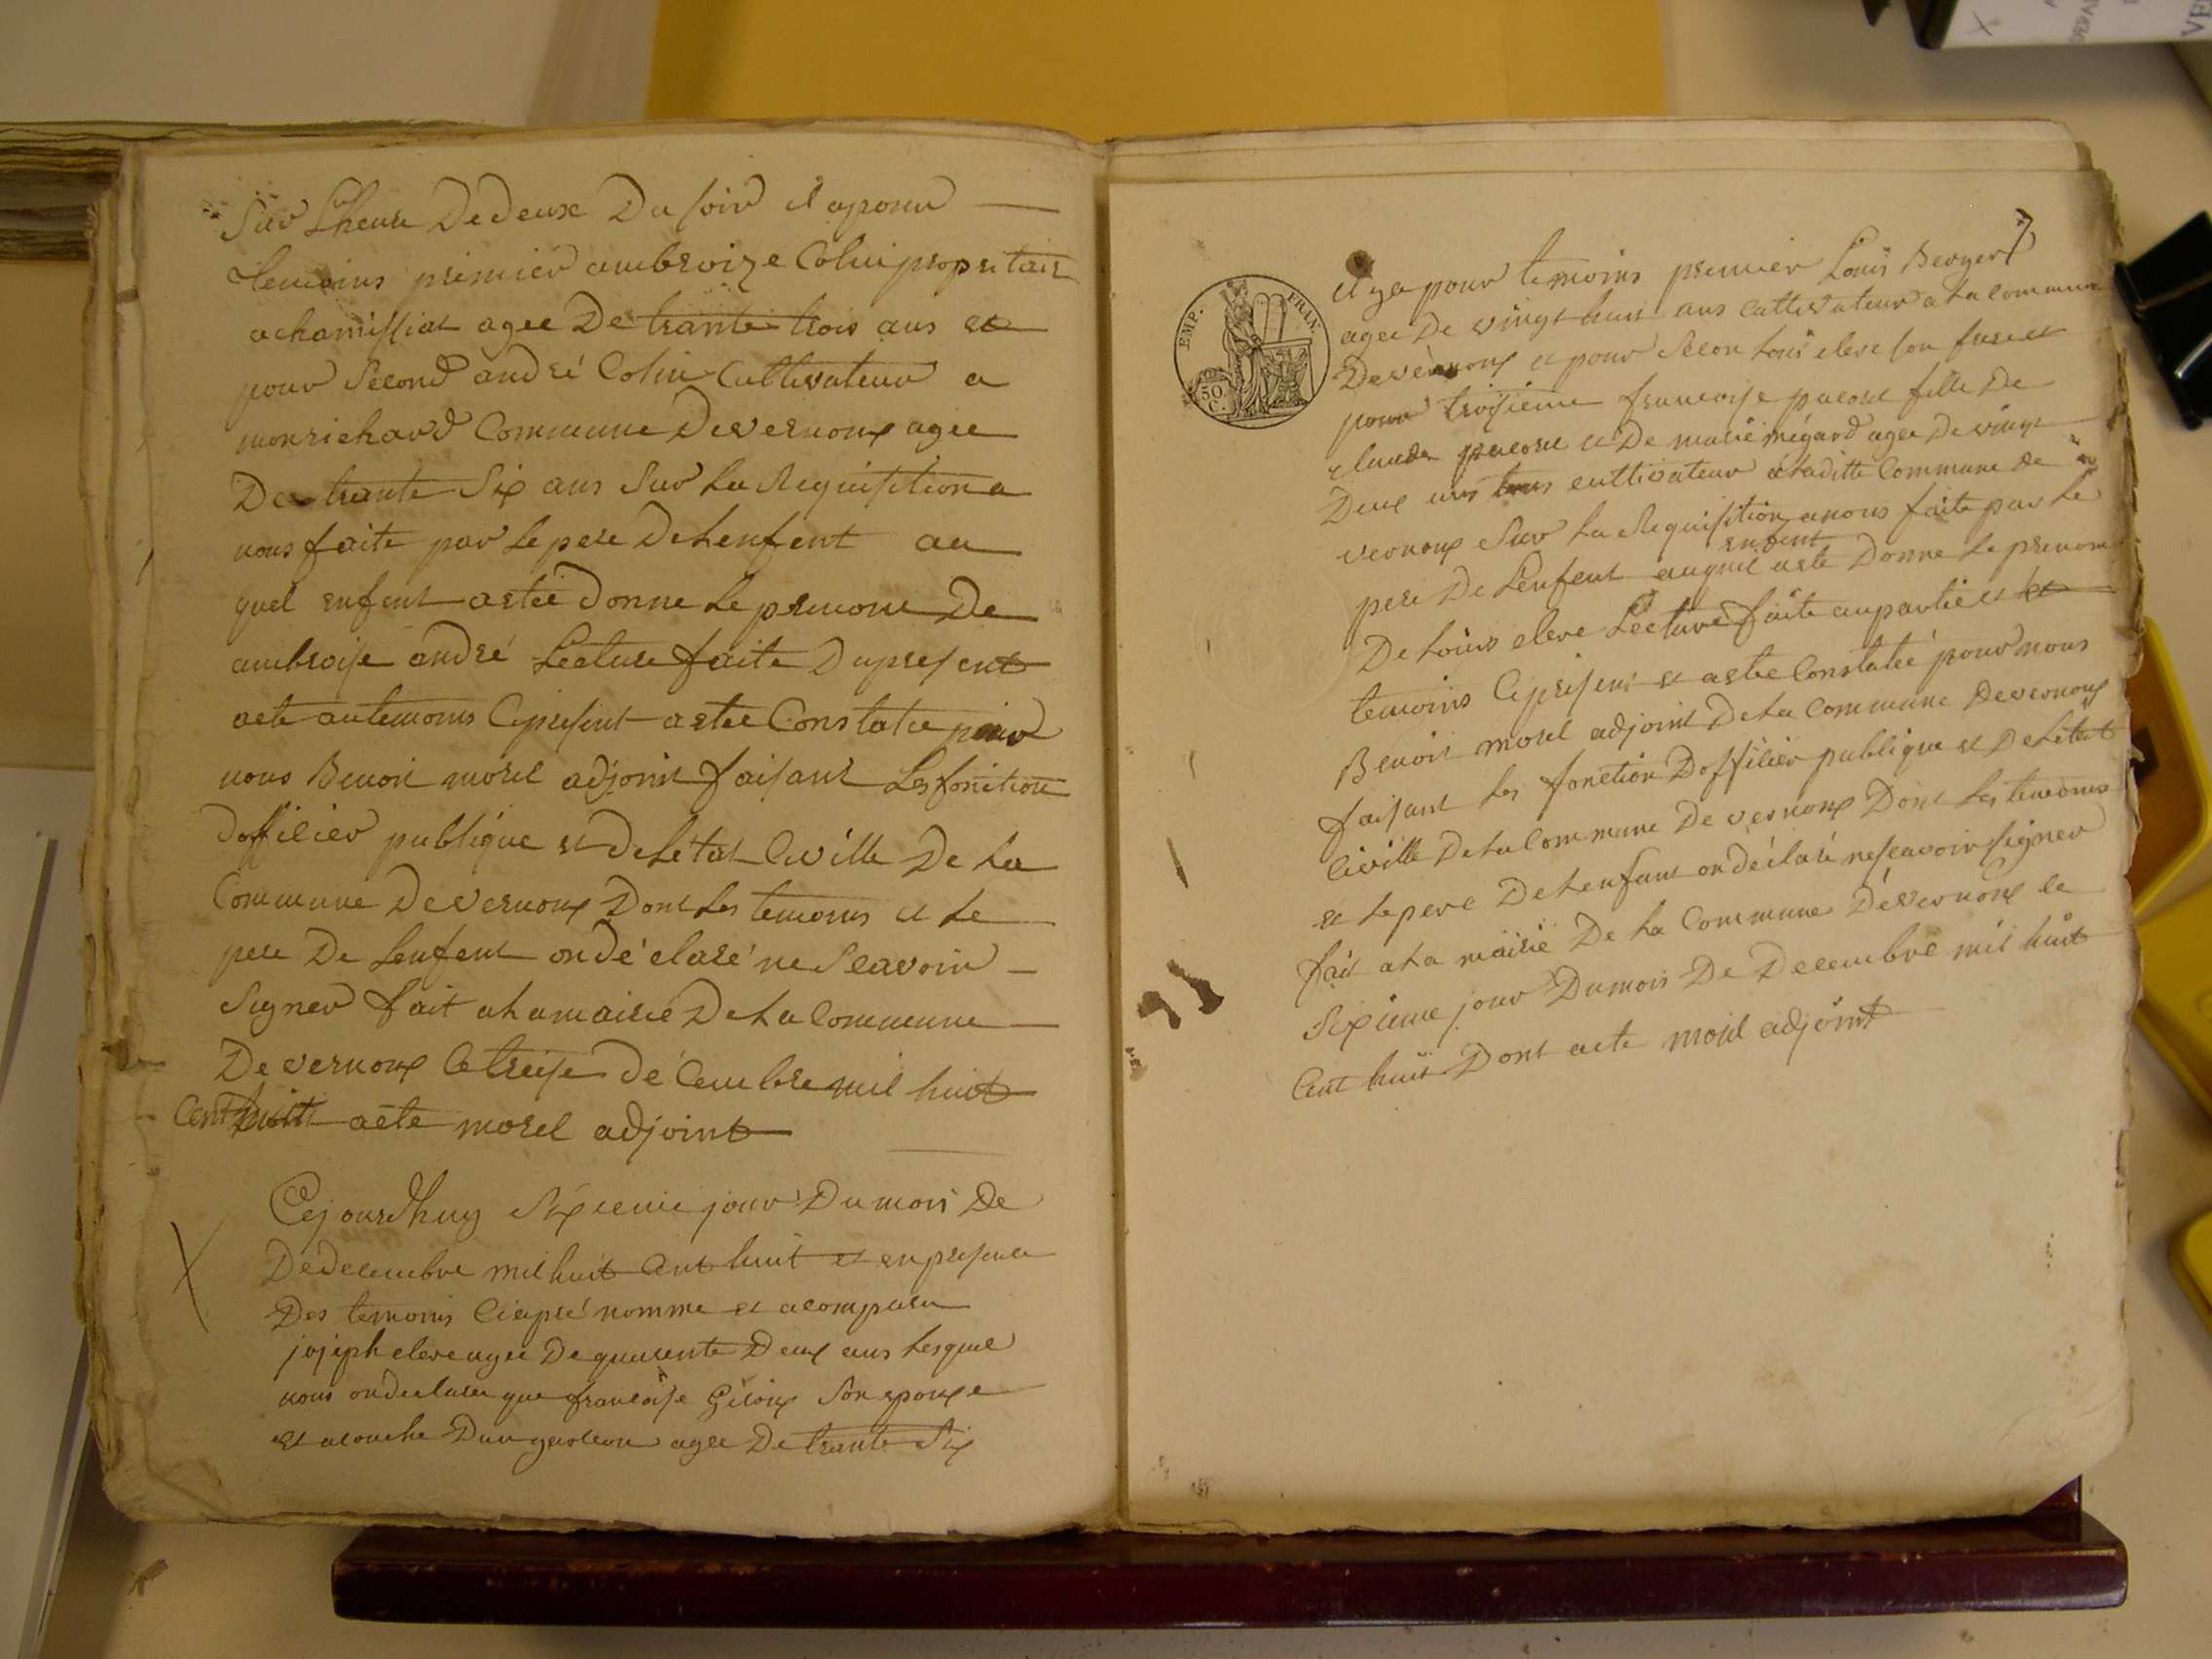 Sur Lheure De deux Du soir il a pour
temoins premier ambroize Colin propritair
a chamissiat agee De trante trois ans et
pour Second andré Colin Cultivateur a
monrichard Commune De vernoux agee
De trante Six ans Sur La Requisition a
nous faite par Le pere De Lenfent au
quel enfent a etée donne Le prenom De
ambroise andré Lecture faite Du present
acte au temoins Cy present a etée Constatée pour
nous Benoit morel adjoint faisant Les fonction
Dofficier publique et De Létat Civille De La
Commune De vernoux Dont Les temoins et Le
pere De Lenfent on déclaré ne Scavoir
Signer fait a La mairie De La Commune
De vernoux Le treise décembre mil huit
Cent huit acte morel adjoint
Cejourdhuy Sixieme jour Du mois De
De decembre mil huit Cent huit et en presence
Des temoins Ciapré nomme et a comparu
joseph eleve agee De quarente Deux ans Lesquel
nous on declarer que francoise Siroux Son epouxe
et acouche Dun garcon agee De trante Six
7
il y a pour temoins premier Louis Berger
agee De vingt huit ans Cultivateur a La commune
De vernoux et pour Secon Louis eleve son frere et
pour troisieme francoise pacour fille De
claude pacour et De marie mégard agee De vingt
Deux ans tous cultivateur a La ditte Commune De
vernoux Sur La Requisition a nous faite par Le
enfent
pere De Lenfent auquel a ete Donne Le prenom
De Louis eleve Lecture faite au partie et
temoins Cy present et a etee Constatée pour nous
Benoit morel adjoint De La Commune De vernoux
faisant Les fonction Dofficier publique et De Létat
Civille De La Commune De vernoux Dont Les temoins
et Le pere De Lenfant on déclaré ne scavoir signer
fait a La mairie De La Commune De vernoux Le
Sixieme jour Du mois De Decembre mil huit
Cent huit Dont acte morel adjoint
EMP. FRAN.
50.
C.
VE